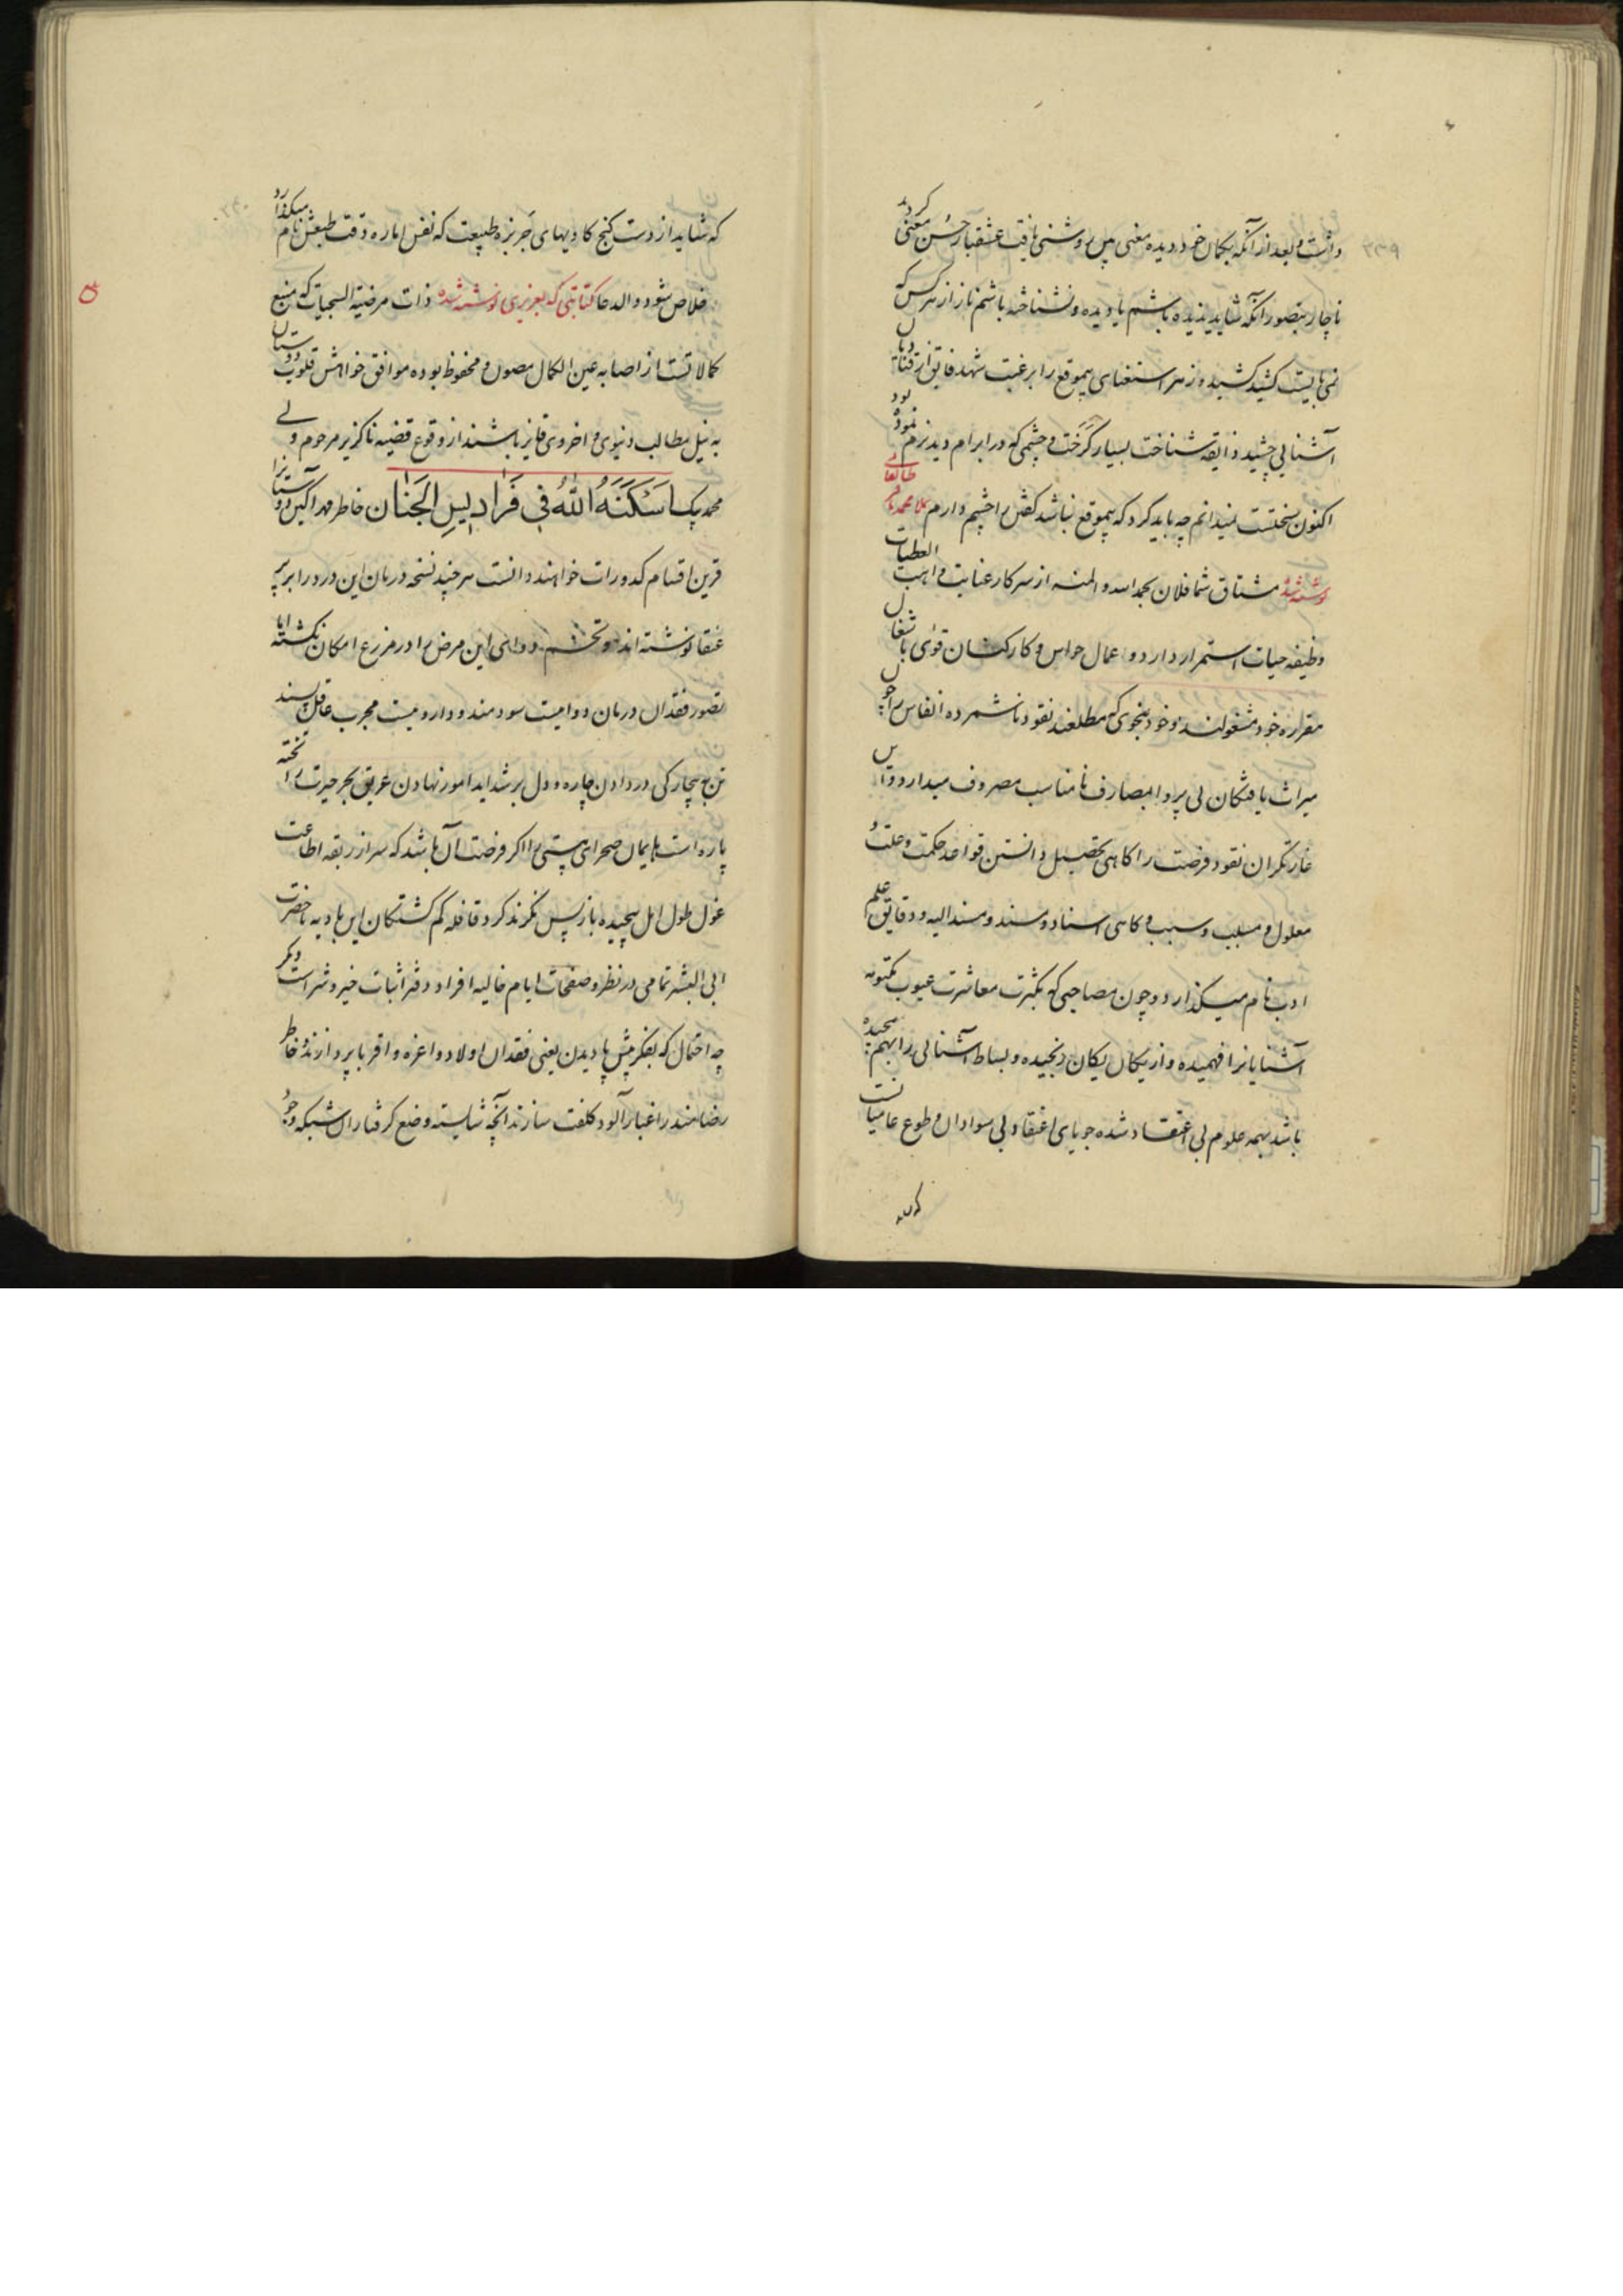 ۲۳۹
داشت و بعد از آنکه بکمان خود دیده معنی بین روشنی یافت عشقباز حسن معنی کردید
ناچار بتصور آنکه شاید ندیده باشم یا دیده و نشناخته باشم ناز از هر کس که
نمی بایست کشید کشیده زهر استغنای بیموقع را برغبت شهد فایق از قنات دهان
آشنایی چشید ذایقه شناخت بسیار کرخت و چشمی که در ابرام دیدنرم نموده بود
اکنون سختست نمیدانم چه باید کرد که بیموقع نباشد کفش را چشم دارم بملا محمد باقر طالقانی
نوشته شد مشتاق شما فلان بحمد الله و المنه از سرکار عنایت واهب العطیات
وظیفه حیات استمرار دارد و اعمال حواس و کارکنان قوی باشغال
مقرره خود مشغولند و خود بنحوی که مطلعند نقود ناشمرده انفاس را چون
میراث یافتکان بی پروا بمصارف نامناسب مصروف میدارد و اس
غارتکران نقود فرصت را کاهی تحصیل دانستن قواعد حکمت و علت و
معلول و مسبب و سبب و کاهی اسناد و سند و مسند الیه و دقایق علم
ادب نام میکذارد و چون مصاحبی که بکثرت معاشرت عیوب مکتومه
آشنایانرا فهمیده و از یکان یکان رنجیده و بساط آشنایی را بهم پیچیده
باشد بهمه علوم بی اعتقاد شده جویای اعتقاد بی سوادان و طوع عامیانست
که شاید
۲۴۰
که شاید از دست کنج کاویهای جربزه طبیعت که نفس اماره دقت طبعش نام میکذارد
خلاص شود و الدعا کتابتی که بعزیزی نوشته شده ذات مرضیة السجیات که منبع
کمالاتست از اصابه عین الکمال مصون و محفوظ بوده موافق خواهش قلوب دوستان
به نیل مطالب دنیوی و اخروی فایز باشند از وقوع قضیه ناکزیر مرحوم ولی
محمد بیک اسکنه الله فی فرادیس الجنان خاطر مهر آکین دوستانرا
قرین اقسام کدورات خواهند دانست هر چند نسخه درمان این درد را بر پر
عنقا نوشته اند و تخم دوای این مرض را در مزرع امکان نکشته اما
تصور فقدان درمان دوایست سودمند و دارویست مجرب عاقل پسند
تن به بیچارکی در دادن چاره و دل بر شداید امور نهادن غریق بحر حیرت را تخته
پاره است پایمال صحرای هستی را اکر فرصت آن باشد که سر از ربقه اطاعت
غول طول امل پیچیده باز پس نکرند کرد قافله کم کشتکان این بادیه تا حضرت
ابی البشر تمامی در نظر و صفحات ایام خالیه افراد دفتر اثبات خیر و شر است دیکر
چه احتمال که بفکر پیش پا دیدن یعنی فقدان اولاد و اعزه و اقربا پردازند و خاطر
رضامند را غبار آلود کلفت سازند آنچه شایسته وضع کرفتاران شبکه وجود